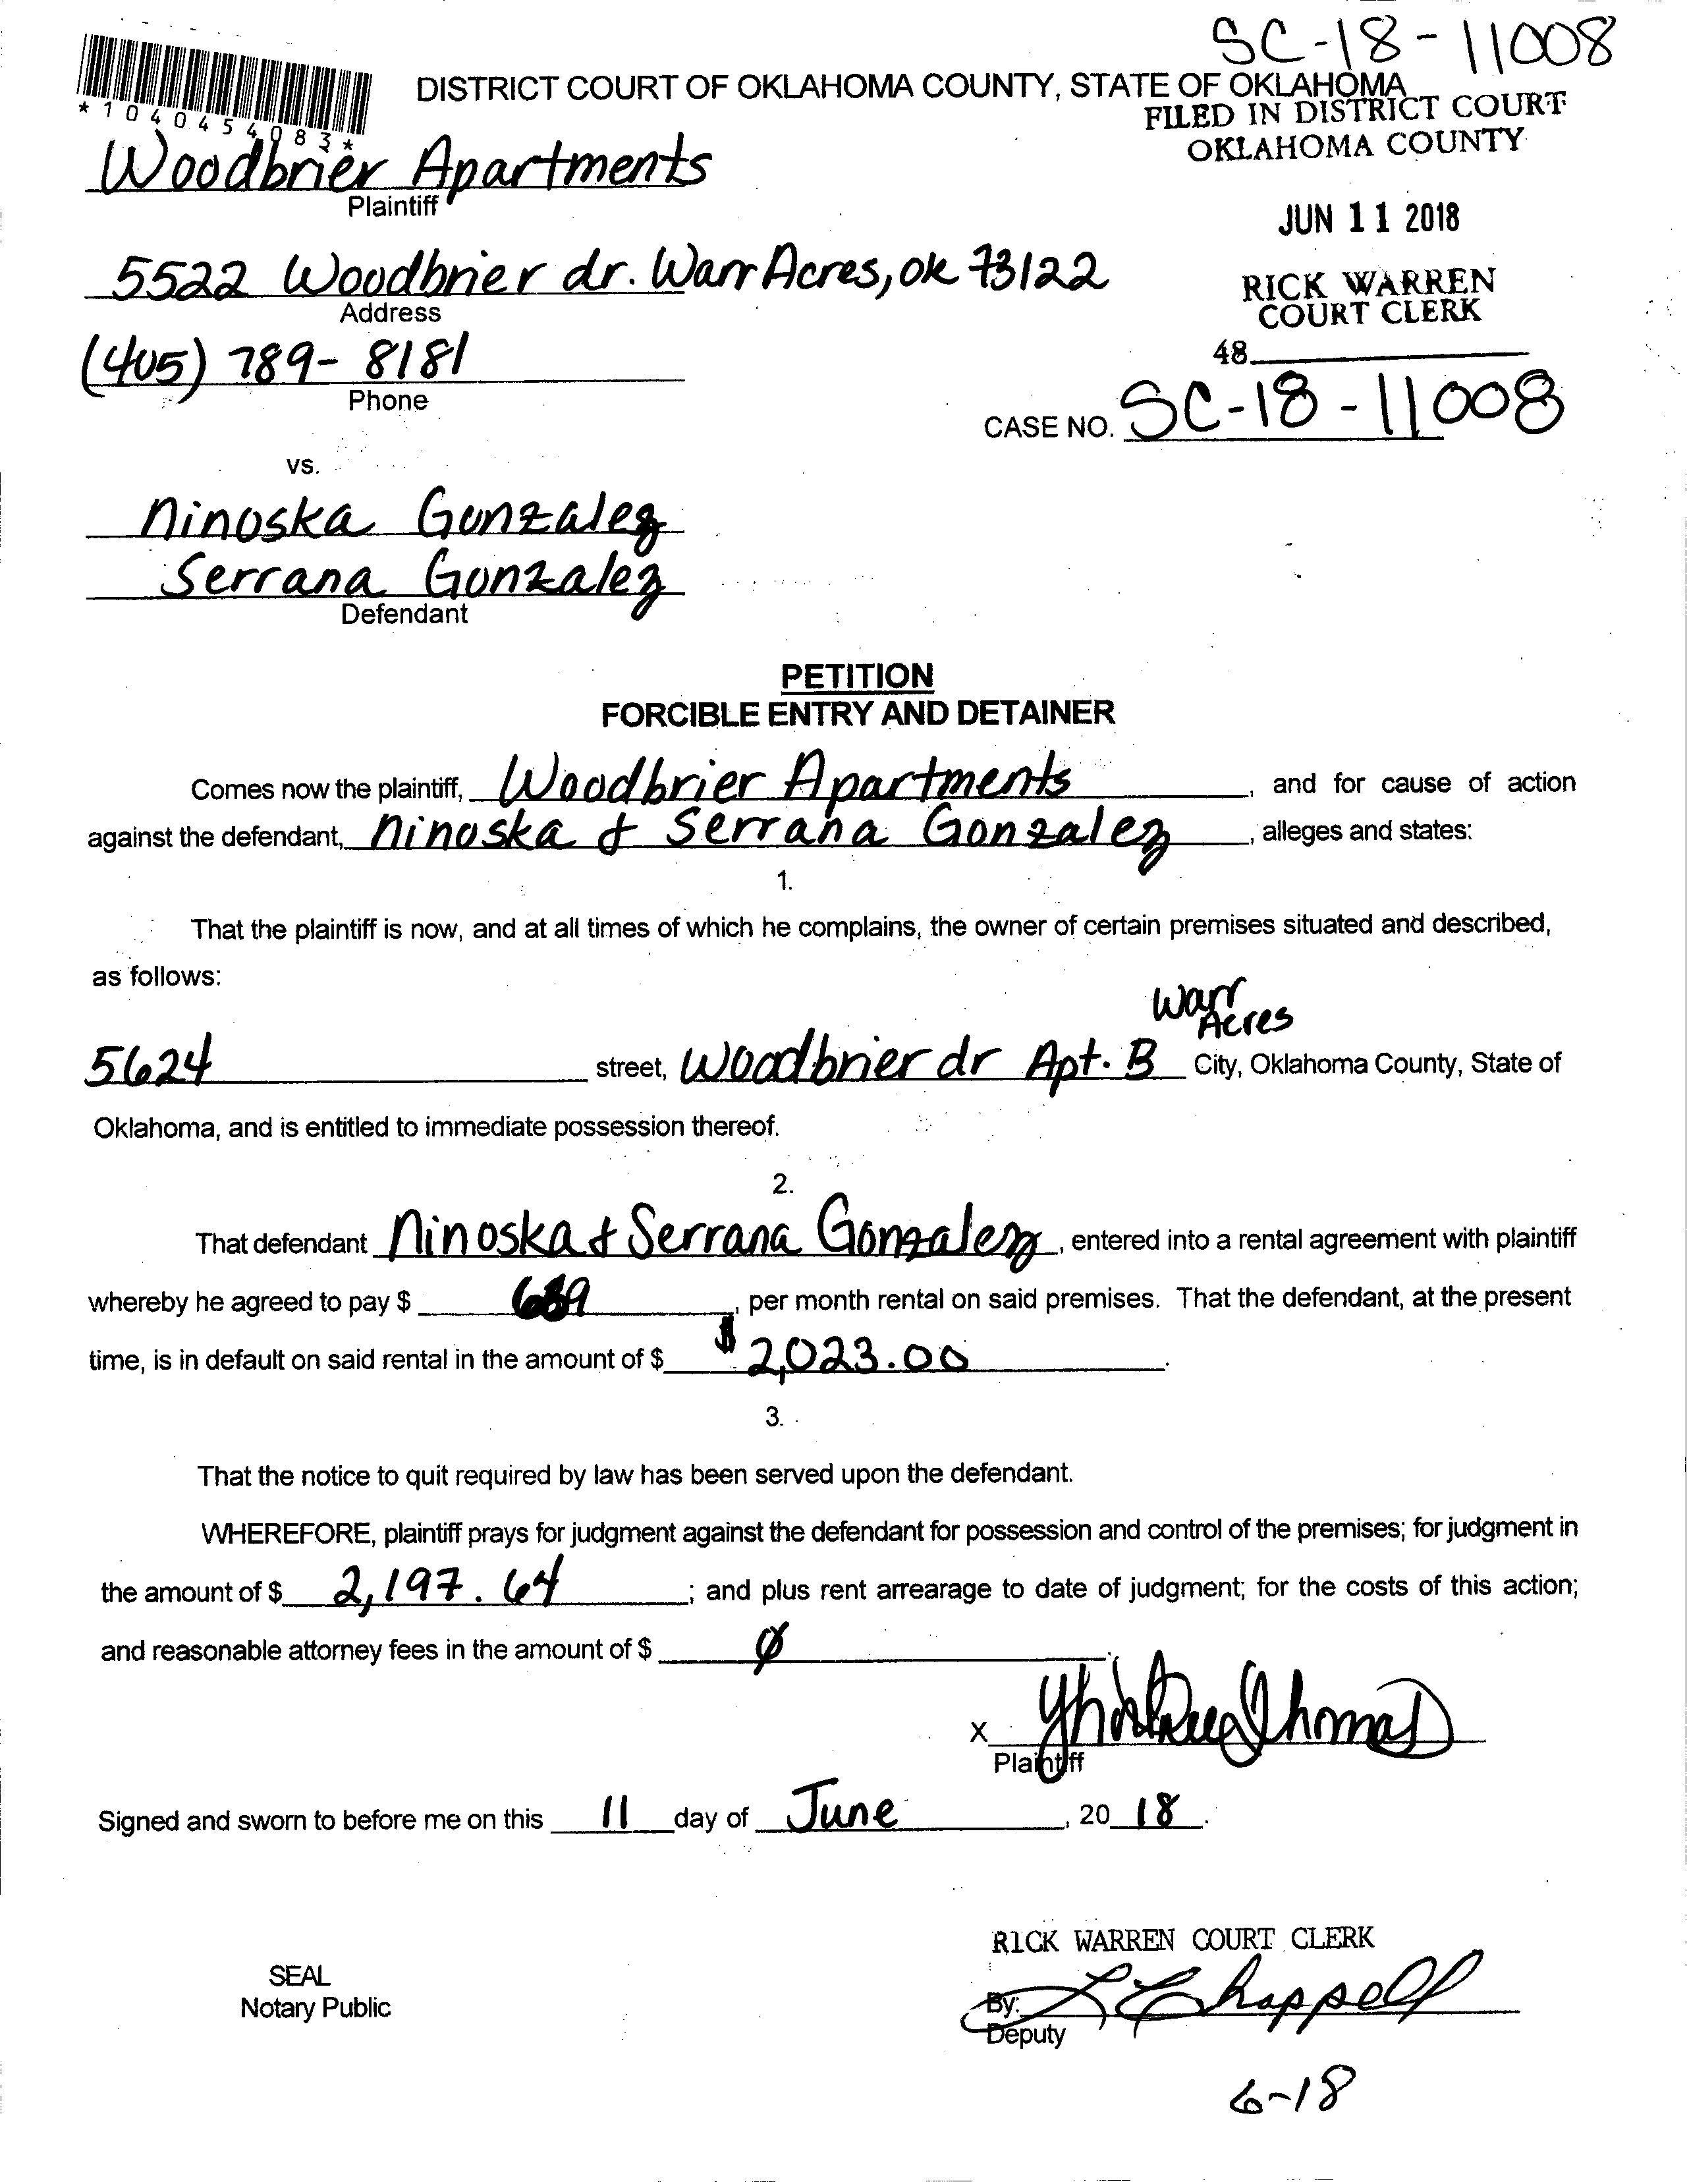 SC-18-11008
DISTRICT COURT OF OKLAHOMA COUNTY, STATE OF OKLAHOMA
*1040454083*
FILED IN DISTRICT COURT
OKLAHOMA COUNTY
Woodbrier Apartments
Plaintiff
JUN 11 2018
5522 Woodbrier dr. Warr Acres, OK 73122
Address
RICK WARREN
COURT CLERK
(405) 789-8181
Phone
48
CASE NO. SC-18-11008
vs.
Ninoska Gonzalez
Serrana Gonzalez
Defendant
PETITION
FORCIBLE ENTRY AND DETAINER
Comes now the plaintiff, Woodbrier Apartments, and for cause of action
against the defendant, Ninoska & Serrana Gonzalez, alleges and states:
1.
That the plaintiff is now, and at all times of which he complains, the owner of certain premises situated and described,
as follows:
Warr
Acres
5624 street, Woodbrier dr Apt. B City, Oklahoma County, State of
Oklahoma, and is entitled to immediate possession thereof.
2.
That defendant Ninoska & Serrana Gonzalez, entered into a rental agreement with plaintiff
whereby he agreed to pay $ , per month rental on said premises. That the defendant, at the present
time, is in default on said rental in the amount of $ $2,023.00.
3.
That the notice to quit required by law has been served upon the defendant.
WHEREFORE, plaintiff prays for judgment against the defendant for possession and control of the premises; for judgment in
the amount of $ 2,197.64; and plus rent arrearage to date of judgment; for the costs of this action;
and reasonable attorney fees in the amount of $ Ø.
X Thomas
Plaintiff
Signed and sworn to before me on this 11 day of June, 20 18.
RICK WARREN COURT CLERK
SEAL
Notary Public
By: L Chappell
Deputy
6-18